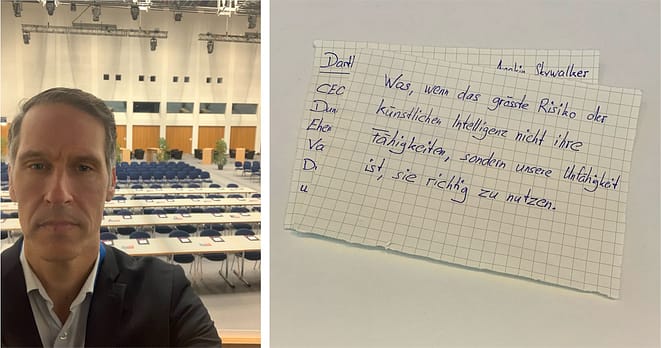 Skywalker
Was, wenn das grösste Risiko der
künstlichen Intelligenz nicht ihre
Fähigkeiten, sondern unsere Unfähigkeit
ist, sie richtig zu nutzen.